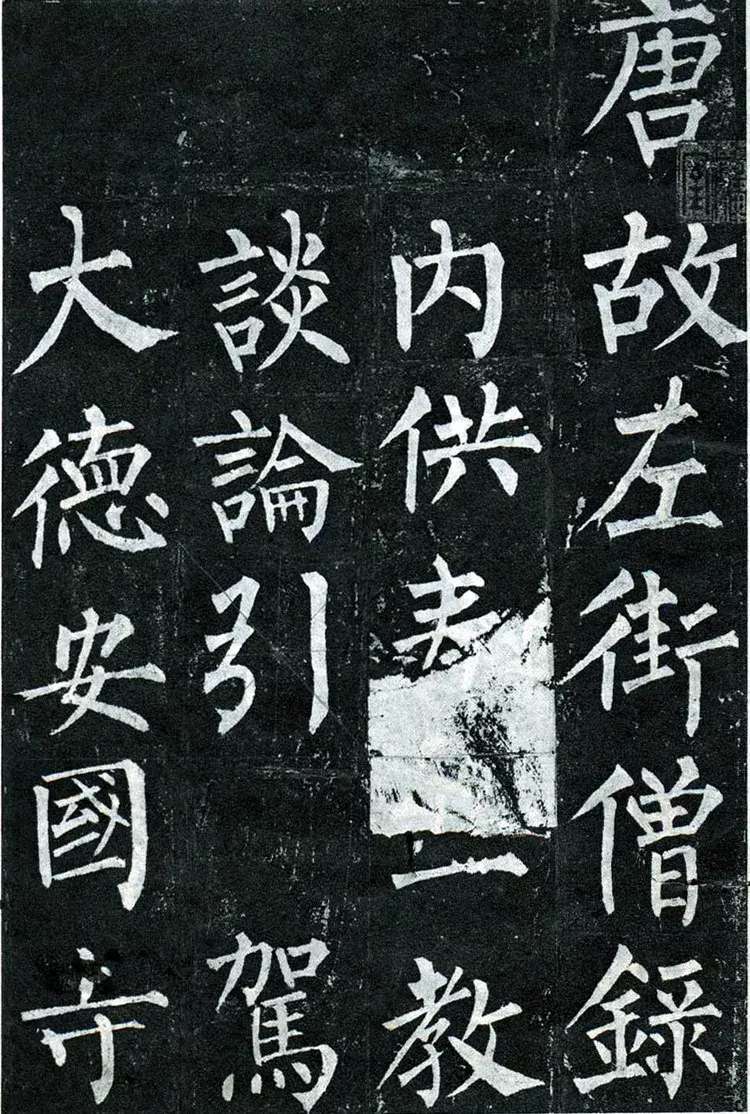 唐故左街僧錄
內供奉教
談論引駕
大德安國寺